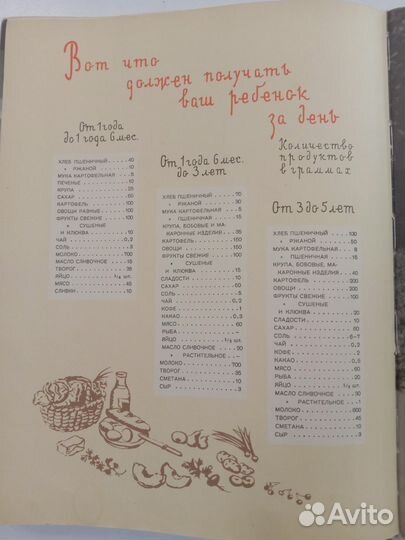 Вот что
должен получать
ваш ребенок
за день
От 1 года
до 1 года 6 мес.
ХЛЕБ ПШЕНИЧНЫЙ 40
" РЖАНОЙ 10
МУКА КАРТОФЕЛЬНАЯ 5
ПЕЧЕНЬЕ 10
КРУПА 25
САХАР 60
КАРТОФЕЛЬ 100
ОВОЩИ РАЗНЫЕ 100
ФРУКТЫ СВЕЖИЕ 100
" СУШЕНЫЕ
И КЛЮКВА 10
ЧАЙ 0,2
СОЛЬ 5
МОЛОКО 700
МАСЛО СЛИВОЧНОЕ 15
ТВОРОГ
ЯЙЦО шт.
МЯСО
СЛИВКИ 10
От 1 года 6 мес.
до 3 лет
ХЛЕБ ПШЕНИЧНЫЙ 70
" РЖАНОЙ 30
МУКА КАРТОФЕЛЬНАЯ 5
" ПШЕНИЧНАЯ 15
КРУПА, БОБОВЫЕ И МА-
КАРОННЫЕ ИЗДЕЛИЯ 35
КАРТОФЕЛЬ 150
ОВОЩИ 150
ФРУКТЫ СВЕЖИЕ 100
" СУШЕНЫЕ
И КЛЮКВА 15
СЛАДОСТИ 10
САХАР 60
СОЛЬ 5
ЧАЙ 0,2
КОФЕ 1
КАКАО 0,3
МЯСО 60
РЫБА –
ЯЙЦО шт.
МАСЛО СЛИВОЧНОЕ 20
" РАСТИТЕЛЬНОЕ –
МОЛОКО 700
ТВОРОГ 35
СМЕТАНА 10
СЫР 3
Количество
продуктов
в граммах
От 3 до 5 лет
ХЛЕБ ПШЕНИЧНЫЙ 100
" РЖАНОЙ 50
МУКА КАРТОФЕЛЬНАЯ 8
" ПШЕНИЧНАЯ 15
КРУПА, БОБОВЫЕ, МАКА-
РОННЫЕ ИЗДЕЛИЯ 40
КАРТОФЕЛЬ 200
ОВОЩИ 200
ФРУКТЫ СВЕЖИЕ 100
" СУШЕНЫЕ
И КЛЮКВА 20
СЛАДОСТИ 10
САХАР 60
СОЛЬ 6–7
ЧАЙ 0,2
КОФЕ 2
КАКАО 0,5
МЯСО 60
РЫБА 20
ЯЙЦО шт.
МАСЛО СЛИВОЧНОЕ 30
" РАСТИТЕЛЬНОЕ 1
МОЛОКО 600
ТВОРОГ 45
СМЕТАНА 10
СЫР 3
Avito